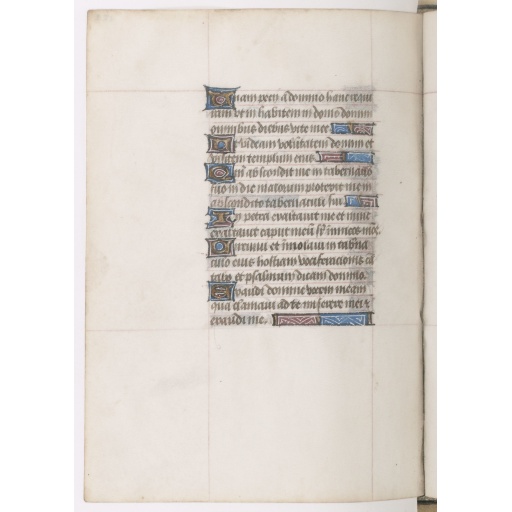 Unam petii a domino hanc requi
ram ut in habitem in domo domini
omnibus diebus vite mee
Ut videam voluntatem domini et
visitem templum eius
Qm̄ abscondit me in tabernaculo
suo in die malorum protexit me in
abscondito tabernaculi sui
In petra exaltavit me et nunc
exaltavit caput meū sr̄ inimicos meos
Circuivi et īmolavi in tab̄na
culo eius hostiam vociferacionis cā
tabo et psalmum dicam domino.
Exaudi domine vocem meam
qua clamavi ad te miserere mei et
exaudi me.